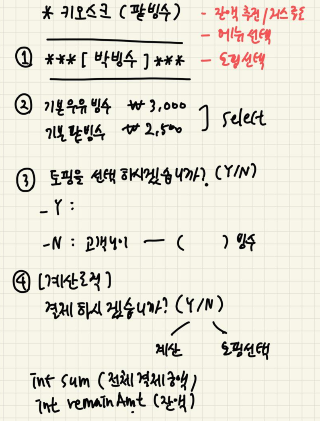 * 키오스크 (팥빙수)
- 잔액 충전 / 거스름돈
- 메뉴 선택
- 토핑선택
① *** [ 박빙수 ] ***
② 기본우유빙수 ₩ 3,000
기본팥빙수 ₩ 2,500
] select
③ 토핑을 선택 하시겠습니까? (Y/N)
- Y :
- N : 고객님이 — ( ) 빙수
④ [계산로직]
결제 하시겠습니까? (Y/N)
계산 토핑선택
int sum (전체결제금액)
int remainAmt (잔액)